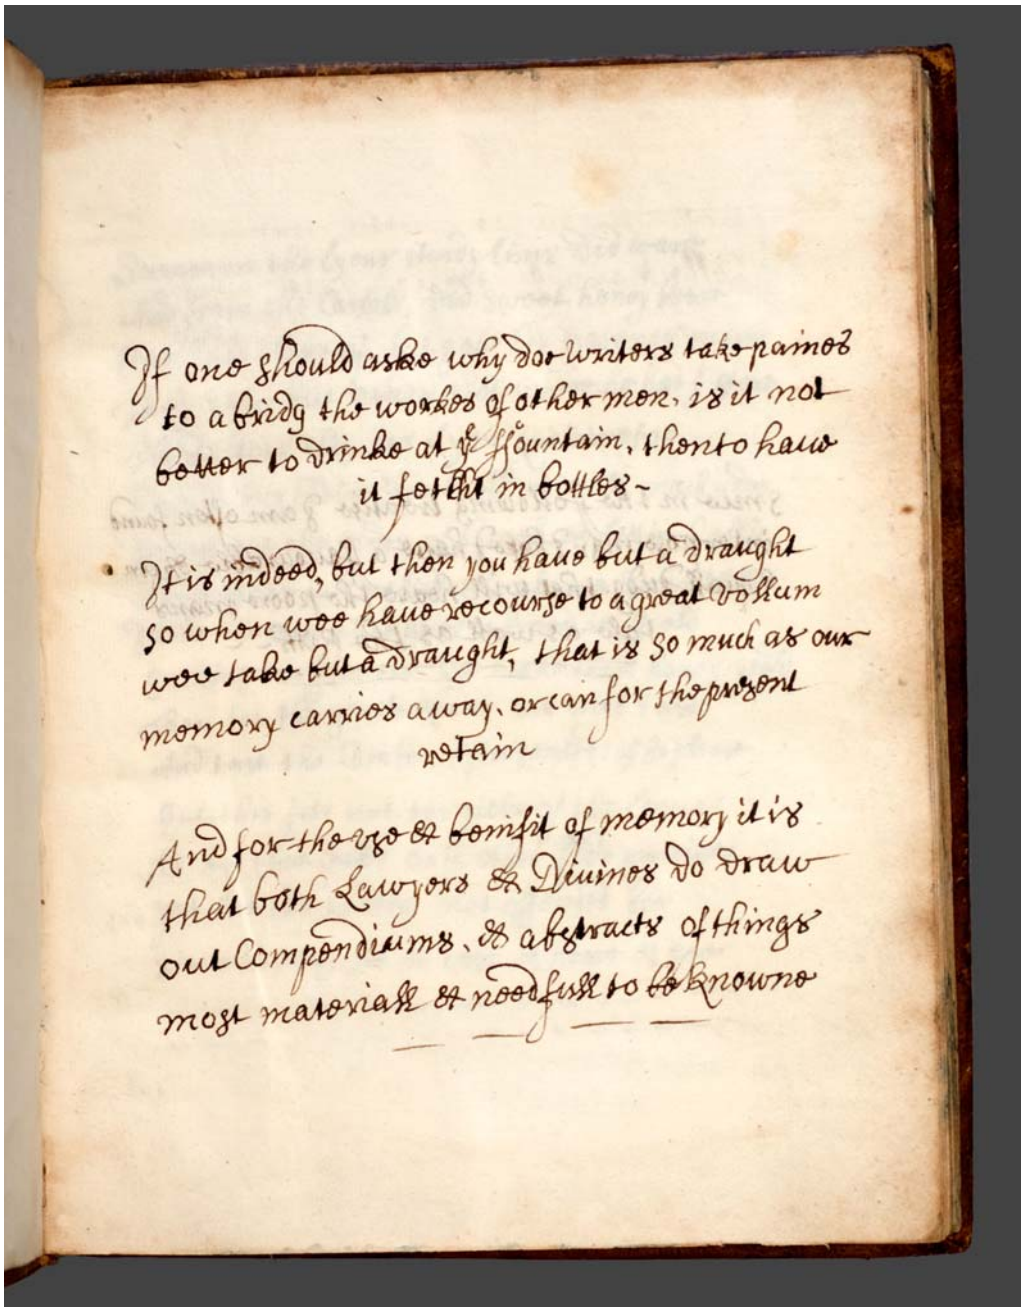 If one should aske why doe writers take paines
to abridg the workes of other men, is it not
better to drinke at ye ffountain, then to have
it fetcht in bottles ~
It is indeed, but then you haue but a draught
so when wee haue recourse to a great vollum
wee take but a draught, that is so much as our
memory carries away, or can for the present
retain
And for the vse & benifit of memory it is
that both Lawyers & Diuines do draw
out Compendiums, & abstracts of things
most materiall & needfull to be knowne